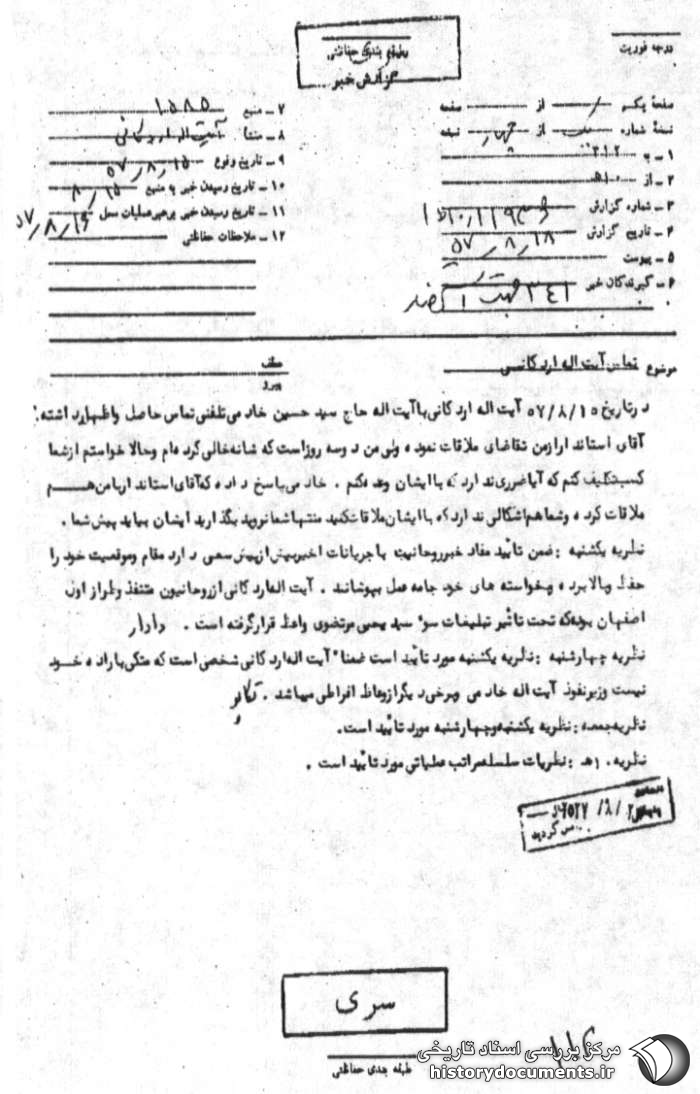 درجه فوریت
طبقه بندی حفاظتی
گزارش خبر
صفحه یکم از صفحه
نسخه شماره یک از چهار نسخه
۱ ـ به ۳۱۲
۲ ـ از ۱۰ه
۳ ـ شماره گزارش
۴ ـ تاریخ گزارش ۵۷/۸/۱۸
۵ ـ پیوست
۶ ـ گیرندگان خبر ۳۴۱
۷ ـ منبع ۱۰۵۸۵
۸ ـ منشأ آیت اله اردکانی
۹ ـ تاریخ وقوع ۵۷/۸/۱۵
۱۰ ـ تاریخ رسیدن خبر به منبع ۸/۱۵
۱۱ ـ تاریخ رسیدن خبر برهبر عملیات محل ۵۷/۸/۱۶
۱۲ ـ ملاحظات حفاظتی
موضوع تماس آیت اله اردکانی
عطف
پیرو
درتاریخ ۵۷/۸/۱۵ آیت اله اردکانی باآیت اله حاج سید حسین خادمی تلفنی تماس حاصل واظهارداشته:
آقای استاندارازمن تقاضای ملاقات نموده ولی من دوسه روزاست که شانه خالی کرده ام وحالا خواستم ازشما
کسب تکلیف کنم که آیاضرری ندارد که باایشان وعده کنم . خادمی پاسخ داده که آقای استانداربامن هم
ملاقات کرده وشماهم اشکالی ندارد که باایشان ملاقات کنید منتهاشمانروید بگذارید ایشان بیاید پیش شما .
نظریه یکشنبه : ضمن تأیید مفاد خبرروحانیت باجریانات اخیربیش ازپیش سعی دارد مقام وموقعیت خود را
حفظ وبالابرده وبخواسته های خود جامه عمل بپوشانند . آیت اله اردکانی ازروحانیون متنفذ وطراز اول
اصفهان بوده که تحت تأثیر تبلیغات سوء سید یحیی مرتضوی واعظ قرارگرفته است . دادار
نظریه چهارشنبه : نظریه یکشنبه مورد تأیید است ضمنا" آیت اله اردکانی شخصی است که متکی باراده خود
نیست وزیرنفوذ آیت اله خادمی وبرخی دیگرازوعاظ افراطی میباشد .
نظریه جمعه : نظریه یکشنبه وچهارشنبه مورد تأیید است.
نظریه ۱۰ه : نظریات سلسله مراتب عملیاتی مورد تأیید است .
سری
طبقه بندی حفاظتی
مرکز بررسی اسناد تاریخی
historydocuments.ir